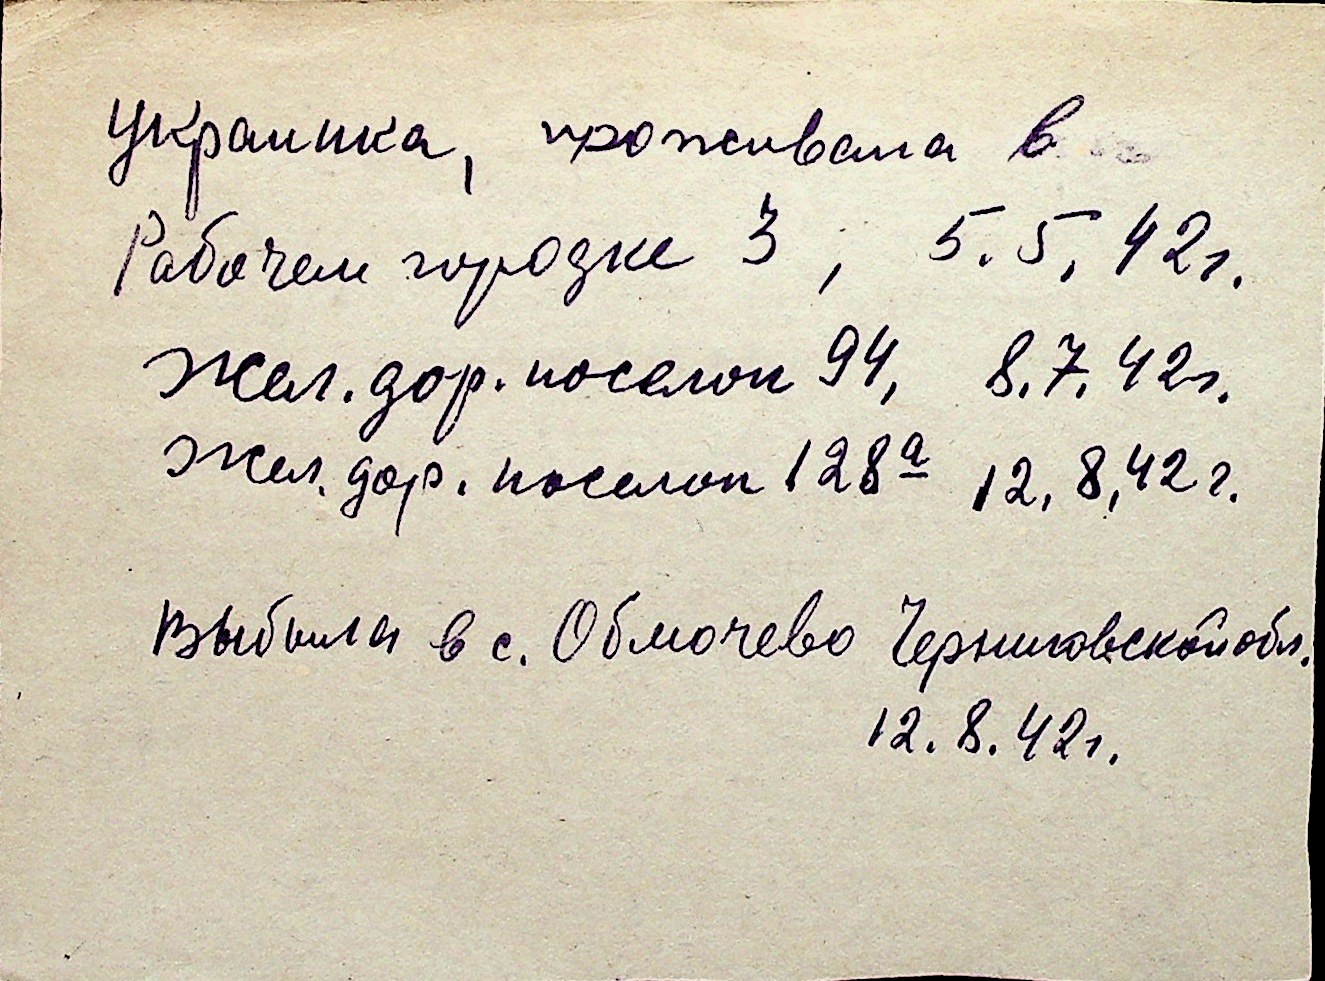 Украинка, проживала в
Рабочем городке 3, 5.5.42г.
Жел.дор. поселок 94, 8.7.42г.
Жел.дор. поселок 128а 12.8.42г.
Выбыла в с. Обмочево Черниговской обл.
12.8.42г.